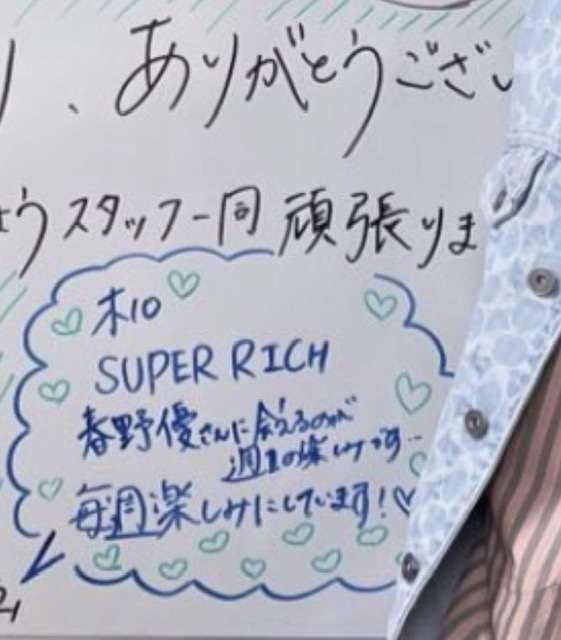 、ありがとうござい
ようスタッフ一同 頑張りま
木10
SUPER RICH
春野優さんに会えるのが
週1の楽しみです‥
毎週楽しみにしています!♡